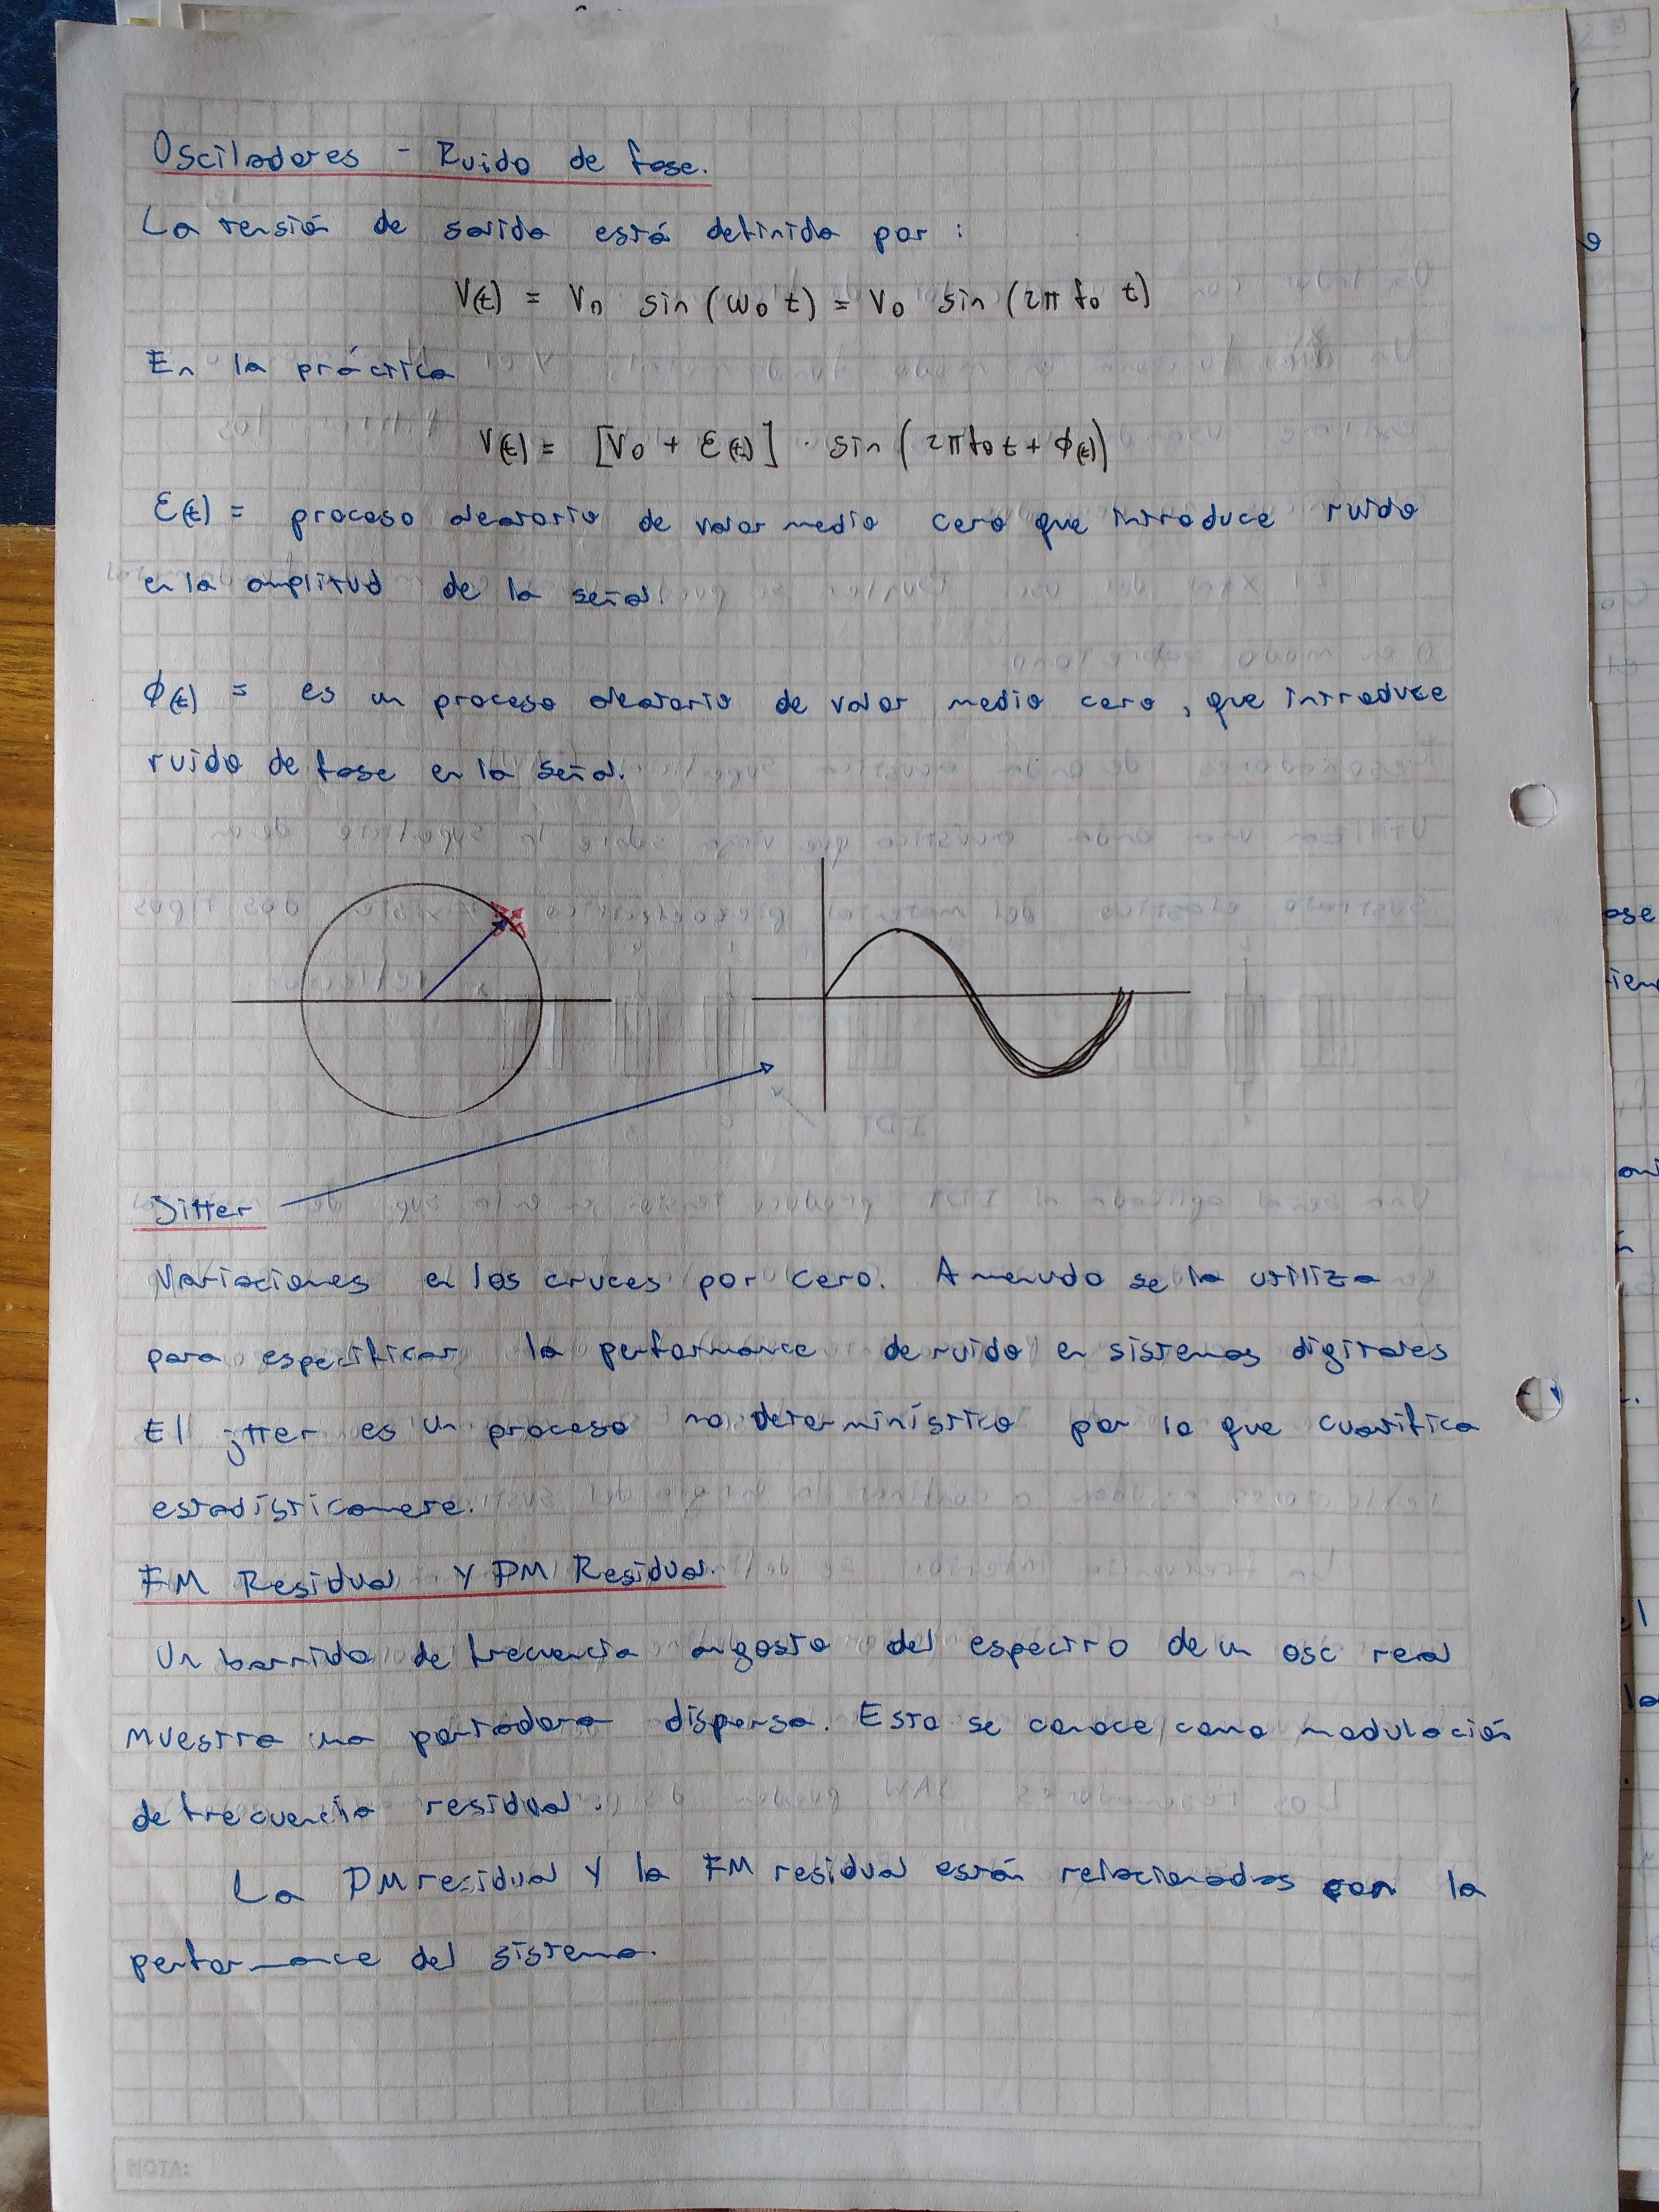 Osciladores - Ruido de fase.
La tensión de salida está definida por :
V(t) = V0 sin (ω0 t) = V0 sin (2π f0 t)
En la práctica
V(t) = [V0 + ε(t)] · sin (2π f0 t + φ(t))
ε(t) = proceso aleatorio de valor medio cero que introduce ruido
en la amplitud de la señal.
φ(t) = es un proceso aleatorio de valor medio cero, que introduce
ruido de fase en la señal.
Jitter
Variaciones en los cruces por cero. A menudo se la utiliza
para especificar la performance de ruido en sistemas digitales
El jtter es un proceso no determinístico por lo que cuantifica
estadísticamete.
FM Residual y PM Residual.
Un barrido de frecuencia angosto del espectro de un osc real
muestra una portadora dispersa. Esto se conoce como modulación
de frecuencia residual.
La PM residual y la FM residual están relacionadas con la
performance del sistema.
NOTA: